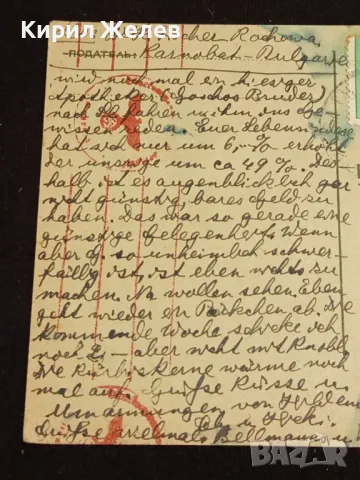 Кирил Желев
Fischer Rochowa
ПОДАТЕЛЬ: Karnobat - Bulgarien
wird noch mal ein hiesiger
Apotheker (Joschos Bruder)
nach fahren u. ihm ins Ge-
wissen reden. Euer Lebens
hat sich nur um 6,-% erhöht
der unsrige um ca 49%. Des-
halb ist es augenblicklich gar
nicht günstig, bares Geld zu
haben. Das war so gerade eine
günstige Gelegenheit. Wenn
aber J. so unheimlich schwer-
fällig ist, ist eben nichts zu
machen. Na wollen sehen. Eben
geht wieder ein Päckchen ab. Die
kommende Woche schicke ich
noch 2,- aber nicht mit Knobl.
Die Kürbiskerne wärme noch
mal auf. Grüße Küsse u.
Umarmungen von
Grüße vielmals Bellmann u.
bazar.bg